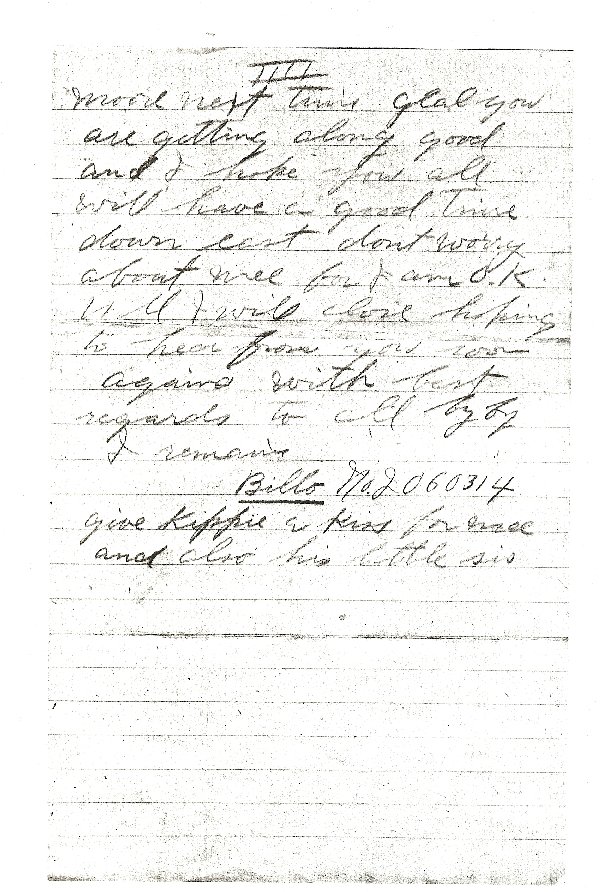 IIII
more next time glad you
are getting along good
and I hope you all
will have a good time
down east dont worry
about mee for I am O.K.
will I will close hoping
to hear from you soon
again with best
regards to all by by
I remain
Billo No. 2060314
give Kippie a kiss for mee
and also his little sis